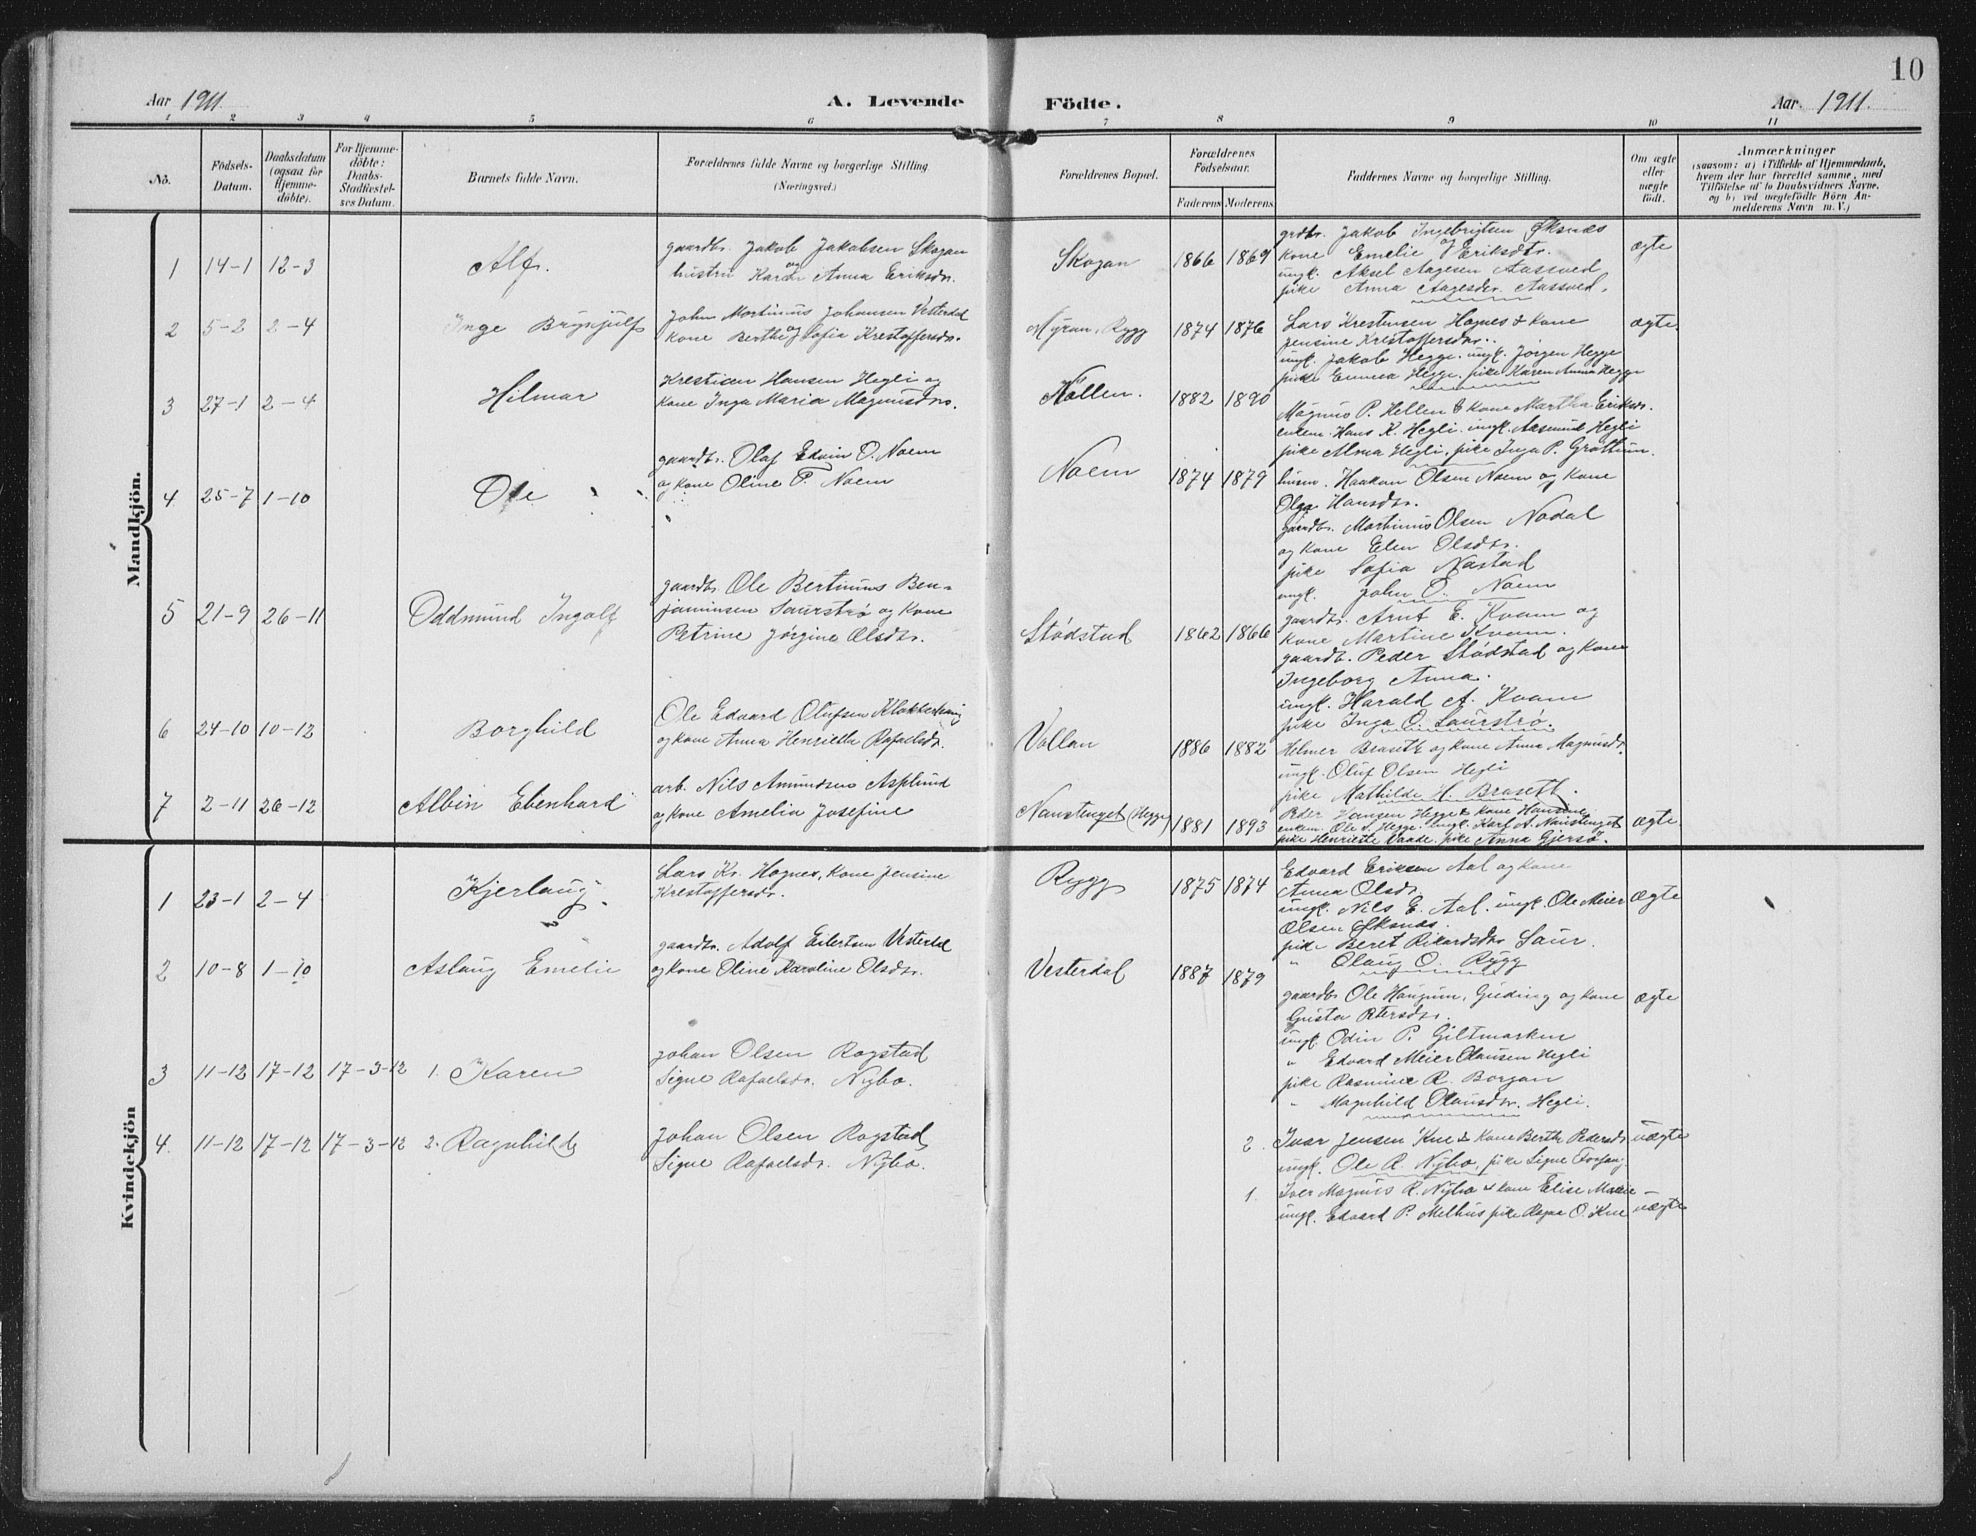 10
Aar 1911.
A. Levende
Födte.
Aar. 1911.
1 2 3 4 5 6 7 8 9 10 11
No.
Födsels-
Datum.
Daabsdatum
(ogsaa for
Hjemme-
döbte).
For Hjemme-
döbte:
Daabs-
Stadfæstel-
ses Datum.
Barnets fulde Navn.
Forældrenes fulde Navne og borgerlige Stilling.
(Næringsvei.)
Forældrenes Bopæl.
Forældrenes
Födselsaar.
Faderens
Moderens
Faddernes Navne og borgerlige Stilling.
Om ægte
eller
uægte
født.
Anmærkninger
(saasom: a) i Tilfælde af Hjemmedaab,
hvem der har forrettet samme, med
Tilföielse af to Daabsvidners Navne,
og b) ved uægtefödte Börn An-
melderens Navn m. V.)
Mandkjön.
1 14-1 12-3 Alf.
gaardbr. Jakob Jakobsen Skogan
og
hustru Karen Anna Eriksdr.
Skogan 1866 1869
grdbr. Jakob Ingebrigtsen Øksnes
og
kone Emelie Eriksdtr.
ungk. Aksel Aagesen Aassved
pike Anna Aagesdtr. Aassved.
ægte
2 5-2 2-4 Inge Brynjulf
John Martinius Johansen Vesterdal
og
kone Berthe Sofia Krestoffersdr.
Myran, Rygg 1874 1876
Lars Krestensen Hognes & kone
Jensine Krestoffersdtr.
ungk. Jakob Hegge. ungk. Jörgen Hegge
pike Emma Hegge. pike Karen Anna Hegge
ægte
3 27-1 2-4 Hilmar
Krestian Hansen Hegli og
kone Inga Maria Magnusdr.
1882 1890
Magnus P. Hellen & kone Martha Eriksdr.
enkem. Hans K. Hegli. ungk. Aasmund Hegli
pike Alma Hegli, pike Inga P. Grøttum.
4 25-7 1-10 Ole
gaardbr. Olaf Edvin O. Noem
og kone Oline P. Noem
Noem 1874 1879
husm. Haakon Olsen Noem og kone
Olga Hansdtr.
gaardbr. Martinus Olsen Nodal
og kone Elen Olsdtr.
pike Sofia Nøstad
ungk. John O. Noem
5 21-9 26-11 Oddmund Ingolf
gaardbr. Ole Bertinius Ben-
jaminsen Saurstrø og kone
Petrine Jørgine Olsdtr.
Stødstad 1862 1866
gaardbr. Arnt E. Kvam og
kone Martine Kvam.
gaardbr. Peder Stødstad og kone
Ingeborg Anna.
ungk. Harald A. Kvam
pike Inga O. Saurstrø.
6 24-10 10-12 Borghild
Ole Edvard Olufsen
og kone Anna Henriette Rafaelsdr.
Vollan 1886 1882
Helmer Braseth og kone Anna Magnusdr.
ungk. Oluf Olsen Hegli
pike Mathilde H. Braseth.
7 2-11 26-12 Albin Ebenhard
arb. Nils Amundsen Asplund
og kone Amelia Josefine
Naustenget (Hegge) 1881 1893
Peder Hansen Hegge & kone Hansine
enkem. Ole S. Hegge. ungk. Karl A. Naustenget
pike Henriette Vaade. pike Anna Gjersø.
ægte
Kvindekjön
1 23-1 2-4 Kjerlaug.
Lars Kr. Hognes, kone Jensine
Krestoffersdr.
Rygg 1875 1874
Edvard Eriksen Aal og kone
Anna Olsdr.
ungk. Nils E. Aal. ungk. Ole Meier
Olsen Øksnes.
pike Beret Rikardsdtr Saur.
" Olaug O. Rygg
ægte
2 10-8 1-10 Aslaug Emelie
gaardbr. Adolf Eilertsen Vesterdal
og kone Oline Karoline Olsdtr.
Vesterdal 1887 1879
gaardbr Ole Haugum, Gieding og kone
Gusta Petersdtr.
ungk. Odin P. Giltmarken
" Edvard Meier Olausen Hegli
pike Rasmine R. Borgan
" Magnhild Olausdtr. Hegli.
ægte
3 11-12 17-12 17-3-12 1. Karen
Johan Olsen Rogstad
Signe Rafaelsdr. Nybo.
4. 11-12 17-12 17-3-12 2. Ragnhild
Johan Olsen Rogstad,
Signe Rafaelsdr. Nybo.
2. Ivar Jensen Kne & kone Berthe Pedersdtr
ungk. Ole R. Nybo, pike Signe
uægte
1. Iver Magnus R. Nybo & kone Elise Marie
ungk. Edvard P. Melhus pike Ragna O. Kne
uægte